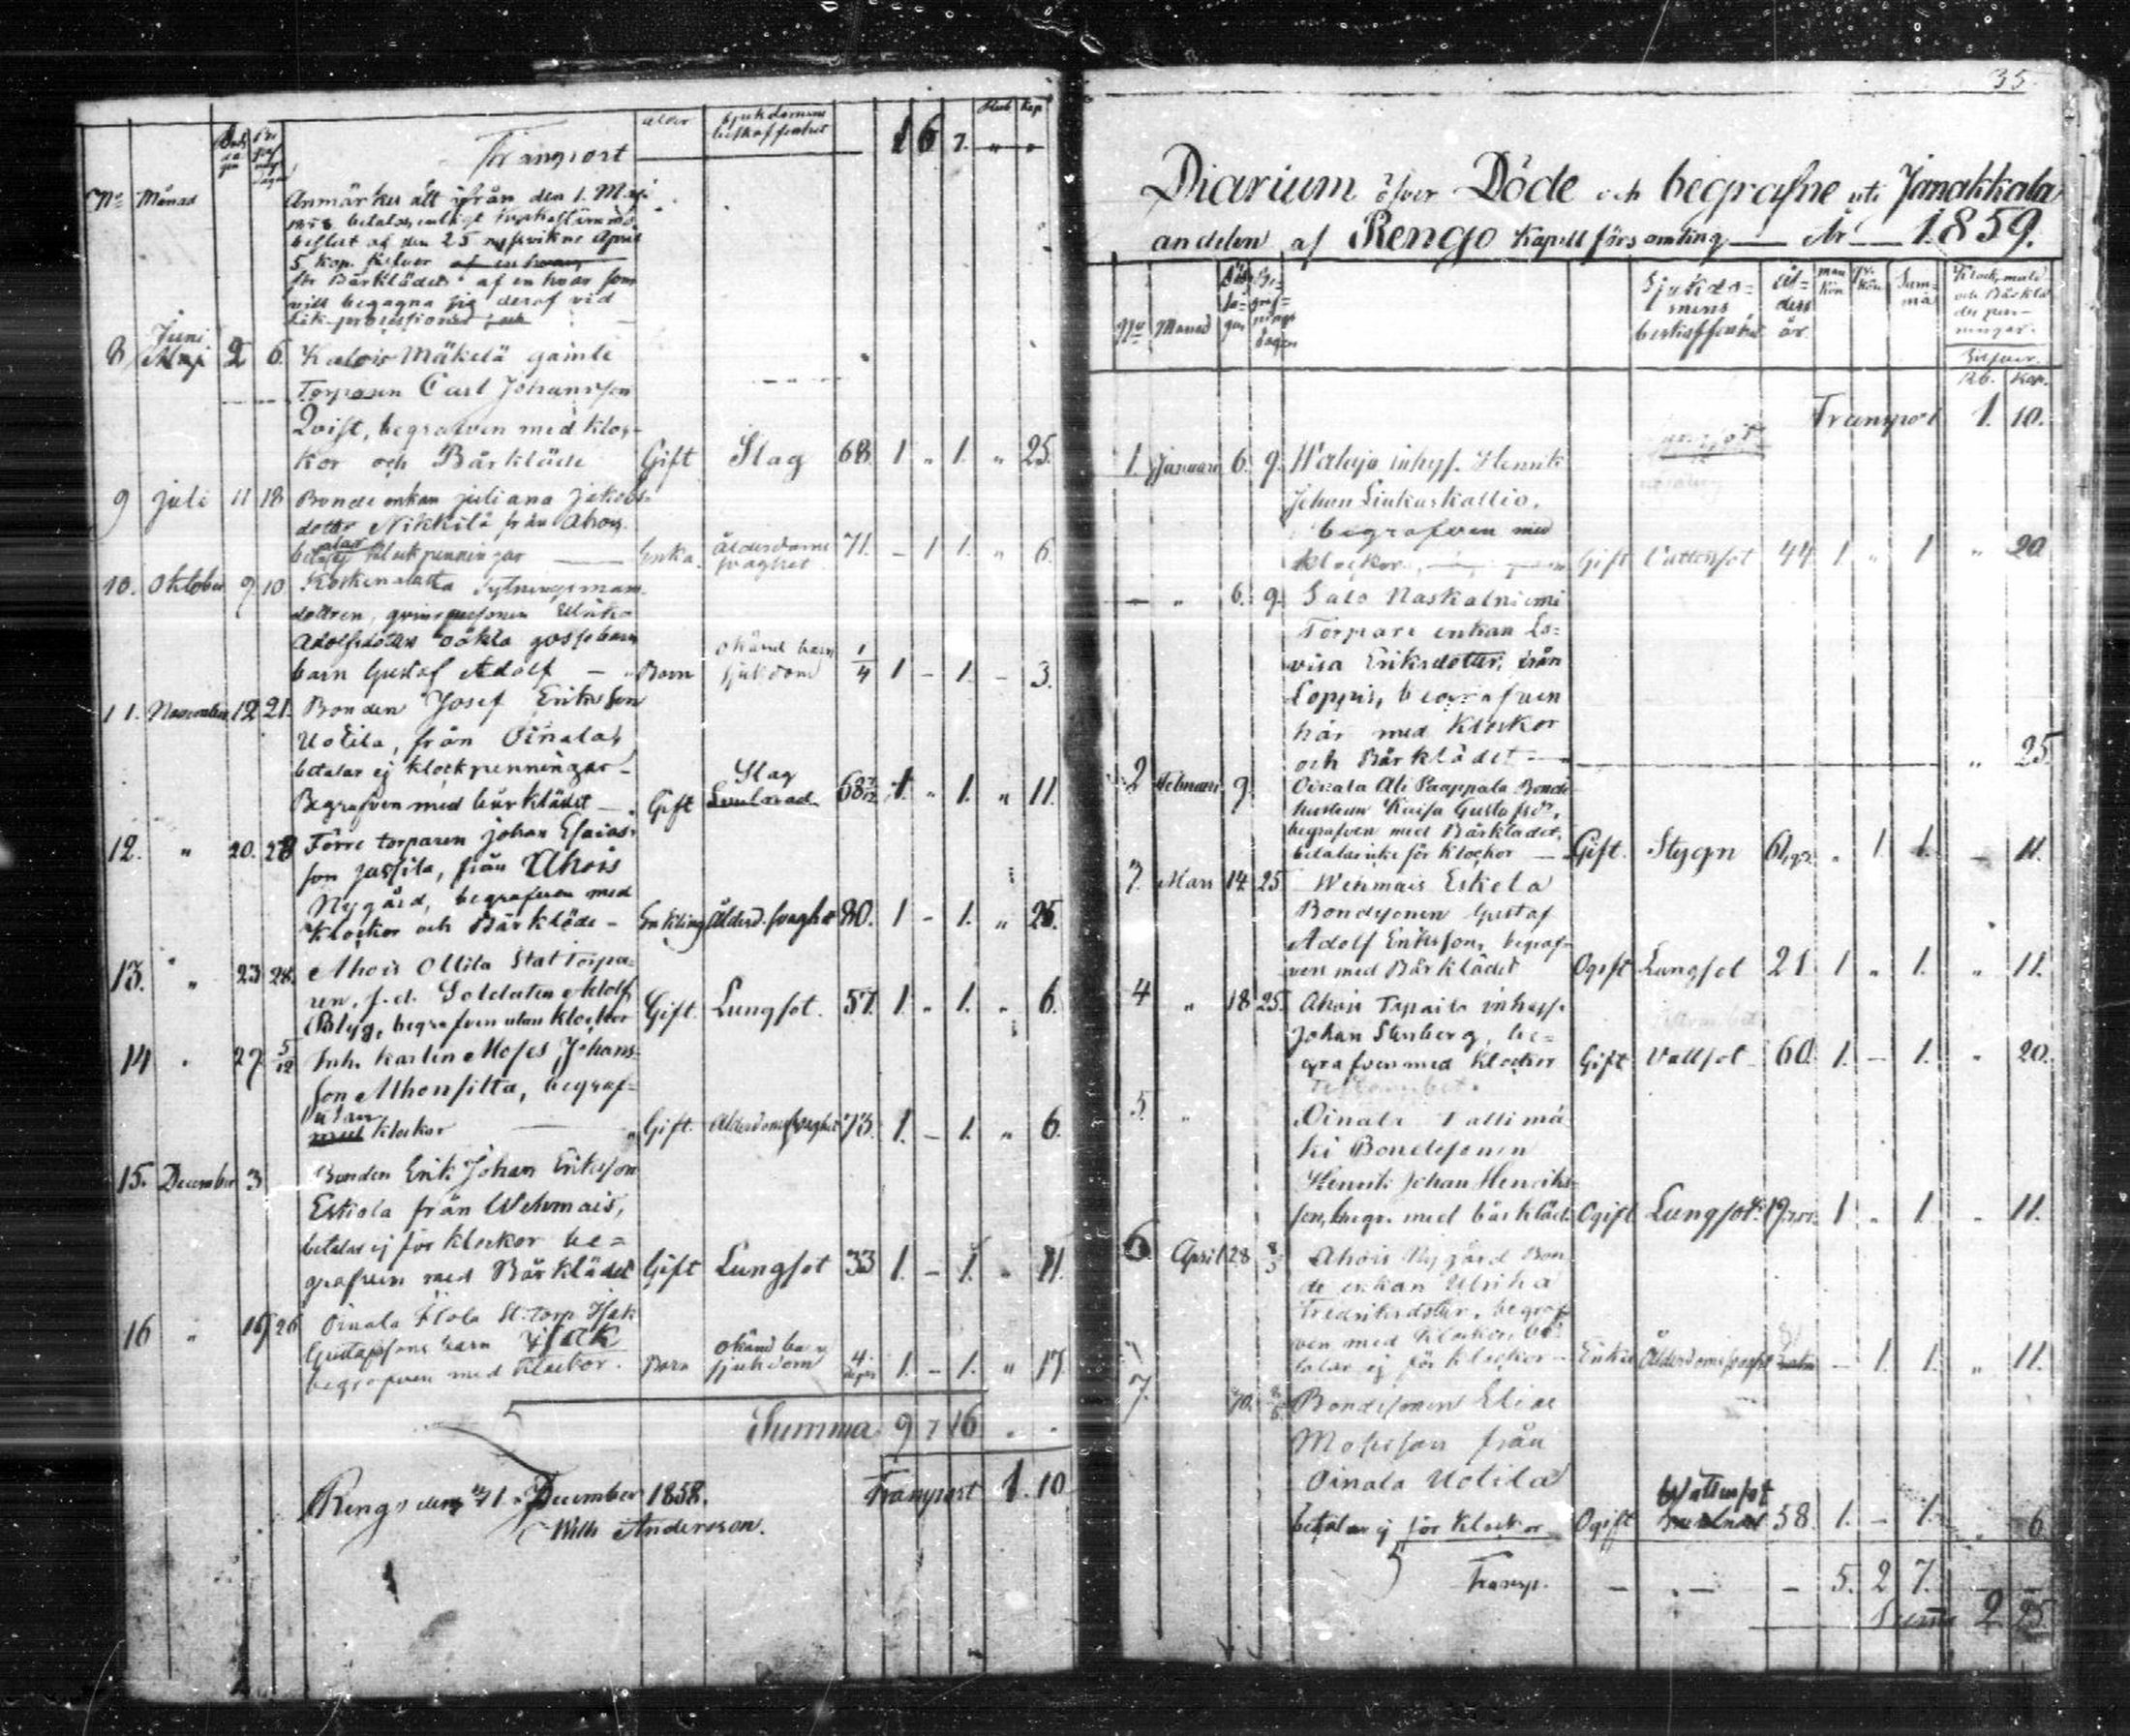 ålder Sjukdomens beskaffenhet Rub Kop
Transport 1 6 7. " "
No Månad
Anmärkes att ifrån den 1. Maji
1858 betalas, enligt
beslut af den 25 April
5 kop. silfver af en hvar
för Bårklädet af en hvar som
vill begagna sig deraf vid
Lik processioner
8 Juni Maji 2 6. Kalois Mäkelä gamle
Torparen Carl Johansson
Qvist, begrafven med kloc-
kor och Bårkläde Gift Slag 68. 1 " 1. " 25.
9 juli 11 18 Bonde enkan juliana jakobs
dotter Nikkilä från Ahois
betalar klockpenningar Enka. ålderdoms svaghet 71. - 1 1. " 6.
10. Oktober 9 10
Adolfsdotters oäkta gossebarn
barn Gustaf Adolf Barn okänd barn sjukdom 1/4 1 - 1. - 3.
11. November 12 21. Bonden Josef Eriksson
Uotila, från Oinala,
betalar ej klockpenningar
Begrafven med bårklädet Gift Slag 68 1. " 1. " 11.
12. " 20. 28 Förre torparen johan Esaias-
son Jussila, från Ahois
Nygård, begrafven med
Klockor och Bårkläde - Enkling Ålderd. svaghet 80. 1 - 1. " 25.
13. " 23 28. Ahois Ollila Stattorpa-
ren, f.d. Soldaten Adolf
Blyg, begrafven utan klockor Gift. Lungsot. 57. 1. " 1. " 6.
14 " 27 5/12 Inh. karlen Moses Johans-
son Alhonsilta, begraf-
utan
med klockor Gift. Ålderdomssvaghet 73. 1. - 1. " 6.
15. December 3 Bonden Erik Johan Eriksson
Eskola från Wehmais,
betalar ej för klockor be=
grafven med Bårklädet Gift Lungsot 33 1. - 1. " 11.
16 " 19 26 Oinala St: torp Isak
Gustafssons barn Isak
begrafven med klockor. Barn okänd barn sjukdom 4 1. - 1. " 17.
Summa 9 7 16 " "
Transport 1. 10
Rengo den 31 December 1858.
Wilh Andersson.
35.
Diarium öfver Döde och begrafne uti Janakkala
andelen af Rengo Kapell församling — År — 1859.
No Månad Döds da- gen Be- graf- nings dagen Sjukdo= mens beskaffenhet ål= ders år. man kön qv. kön Sum- ma Klock, mull och Bårklä des pen- ningar.
Silfver.
Rb. Kop.
Transport 1. 10.
1. Januari 6. 9. inhys. Henrik
Johan Liukaskallio,
begrafven med
klockor Gift Vattensot 44 1 " 1 " 20
— " 6. 9. Salo Naskalniemi
Torpare enkan Lo=
visa Eriksdotter, från
Loppis, begrafven
här med Klockor
och Bårklädet — " 25.
2 Februari 9. Oinala Ali Paappala Bonde
hustrun Kaisa Gustafsdr,
begrafven med Bårklädet,
betalar icke för klockor — Gift. Stygn 61 " 1. 1. — 11.
3. Mars 14. 25 Wehmais Eskola
Bondesonen Gustaf
Adolf Eriksson, begraf-
ven med Bårklädet Ogift Lungsot 21 1 " 1. " 11.
4 " 18 25. Ahois Tapaila inhys.
Johan Stenberg, be=
grafven med klockor Gift Vattsot 60. 1. — 1. " 20.
5. " Oinala Tallimä
ki Bondesonen
Henrik Johan Henriks-
son, begr. med bårkläde Ogift Lungsot 19 1 " 1. " 11.
6. April 28 8/5 Ahois Nygård Bon
de enkan Ulrika
Fredriksdotter, begraf-
ven med klockor, be
talar ej för klockor - Enka Ålderdomssvaghet — 1. 1. " 11.
7. Bondesonen Elias
Mosesson från
Oinala Uotila
betalar ej för klockor Ogift Wattensot 58. 1. — 1. " 6
Transp. — — — 5. 2 7.
Summa 2 25